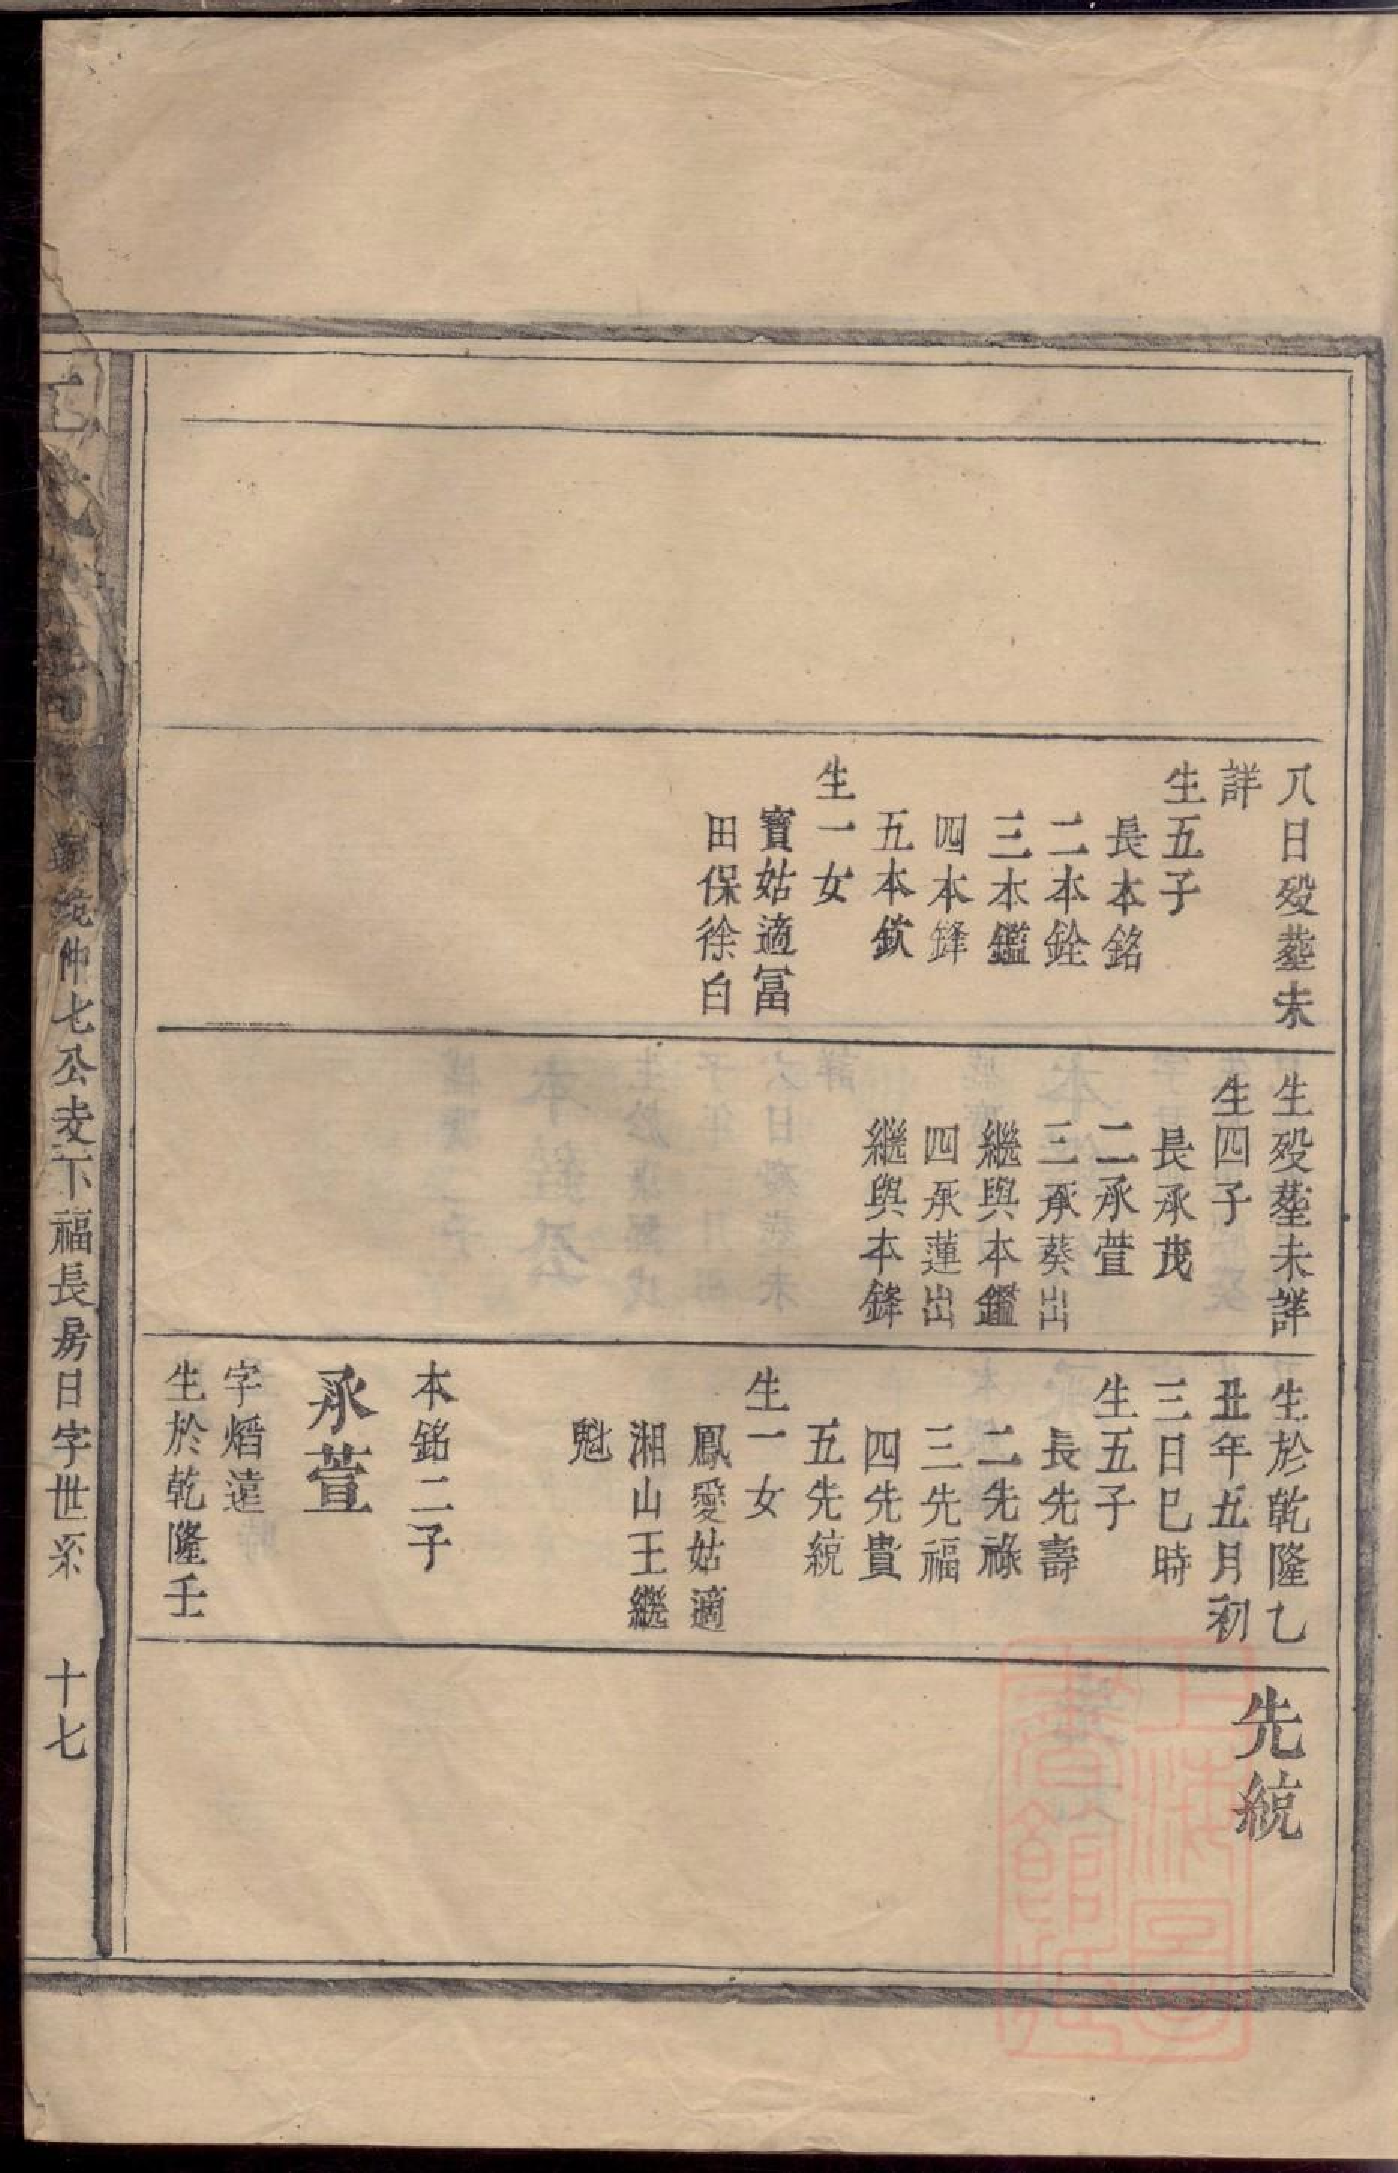 八日殁塟未
詳
生五子
長本銘
二本銓
三本鑑
四本鋒
五本欽
生一女
寶姑適冨
田保徐白
生殁塟未詳
生四子
長承茂
二承萱
三承葵出
繼與本鑑
四承蓮出
繼與本鋒
生於乾隆乙
丑年五月初
三日巳時
生五子
長先壽
二先祿
三先福
四先貴
五先統
生一女
鳳愛姑適
湘山王繼
魁
本銘二子
承萱
字熺遠
生於乾隆壬
先統
統仲七公支下福長房日字世系
十七
上海圖書館藏